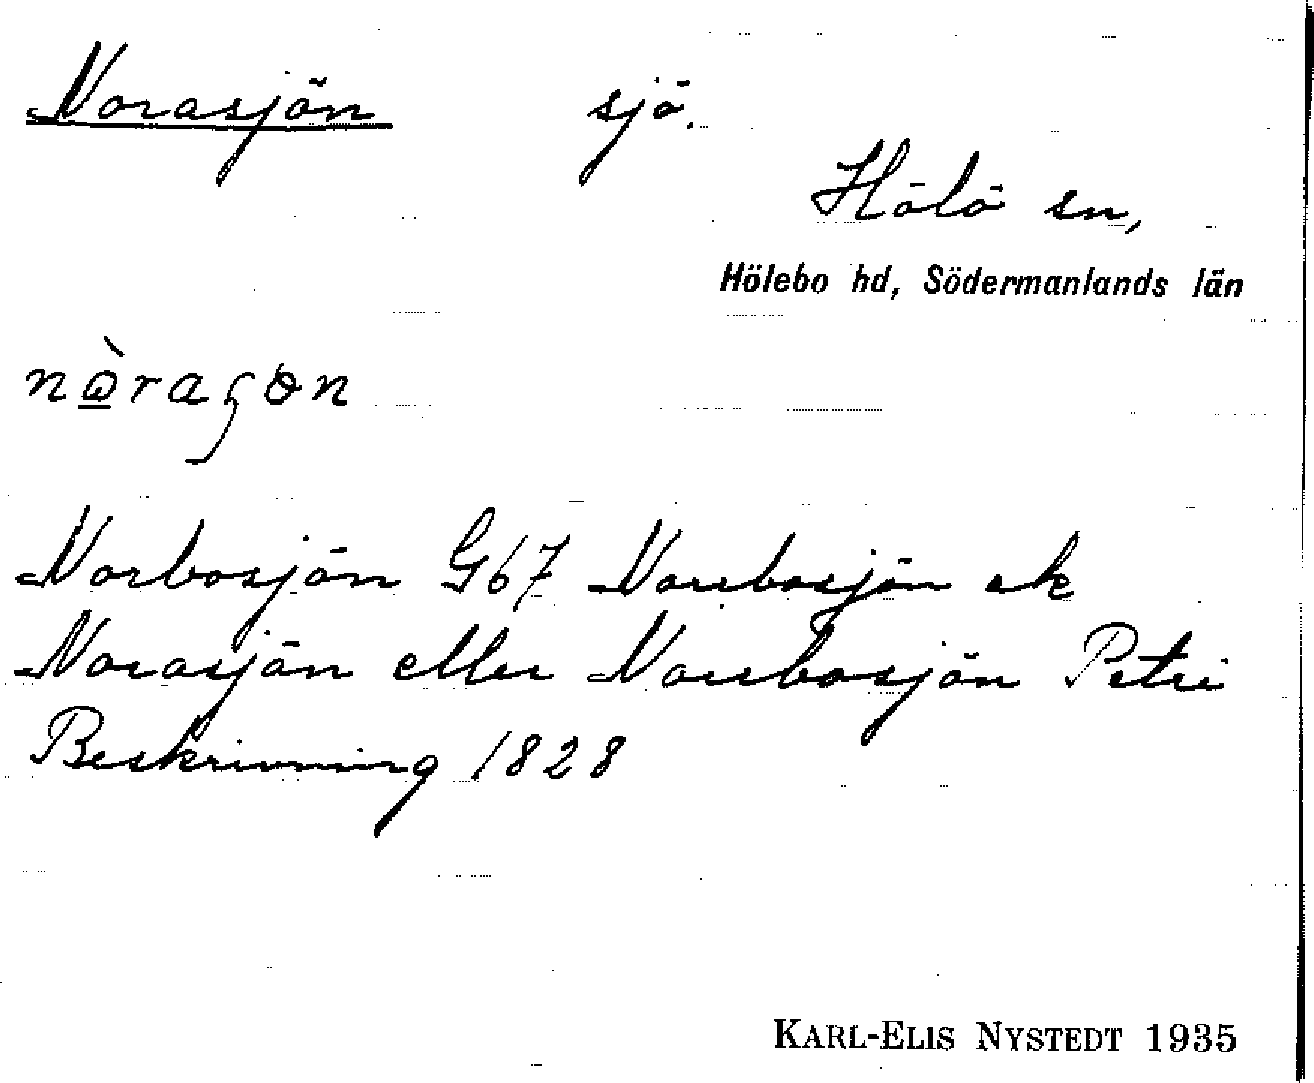 Norasjön sjö.
Hölö sn,
Hölebo hd, Södermanlands län
Norbosjön G67 Norrbosjön ek
Norasjön eller Norrbosjön Petri
Beskrivning 1828
KARL-ELIS NYSTEDT 1935